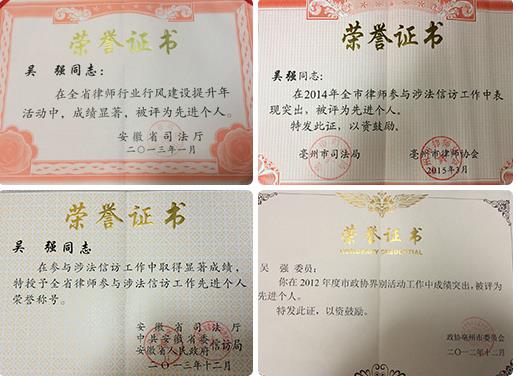 荣誉证书
吴 强同志：
在全省律师行业行风建设提升年
活动中，成绩显著，被评为先进个人。
安徽省司法厅
二〇一三年一月
荣誉证书
吴 强同志：
在2014年全市律师参与涉法信访工作中表
现突出，被评为先进个人。
特发此证，以资鼓励。
亳州市司法局 亳州市律师协会
2015年3月
荣誉证书
吴 强同志
在参与涉法信访工作中取得显著成绩，
特授于全省律师参与涉法信访工作先进个人
荣誉称号。
安徽省司法厅
中共安徽省委
安徽省人民政府 信访局
二〇一三年十二月
荣誉证书
HONORARY CREDENTIAL
吴 强 委员：
你在 2012 年度市政协界别活动工作中成绩突出，被评为
先进个人。
特发此证，以资鼓励。
政协亳州市委员会
二〇一二年十二月